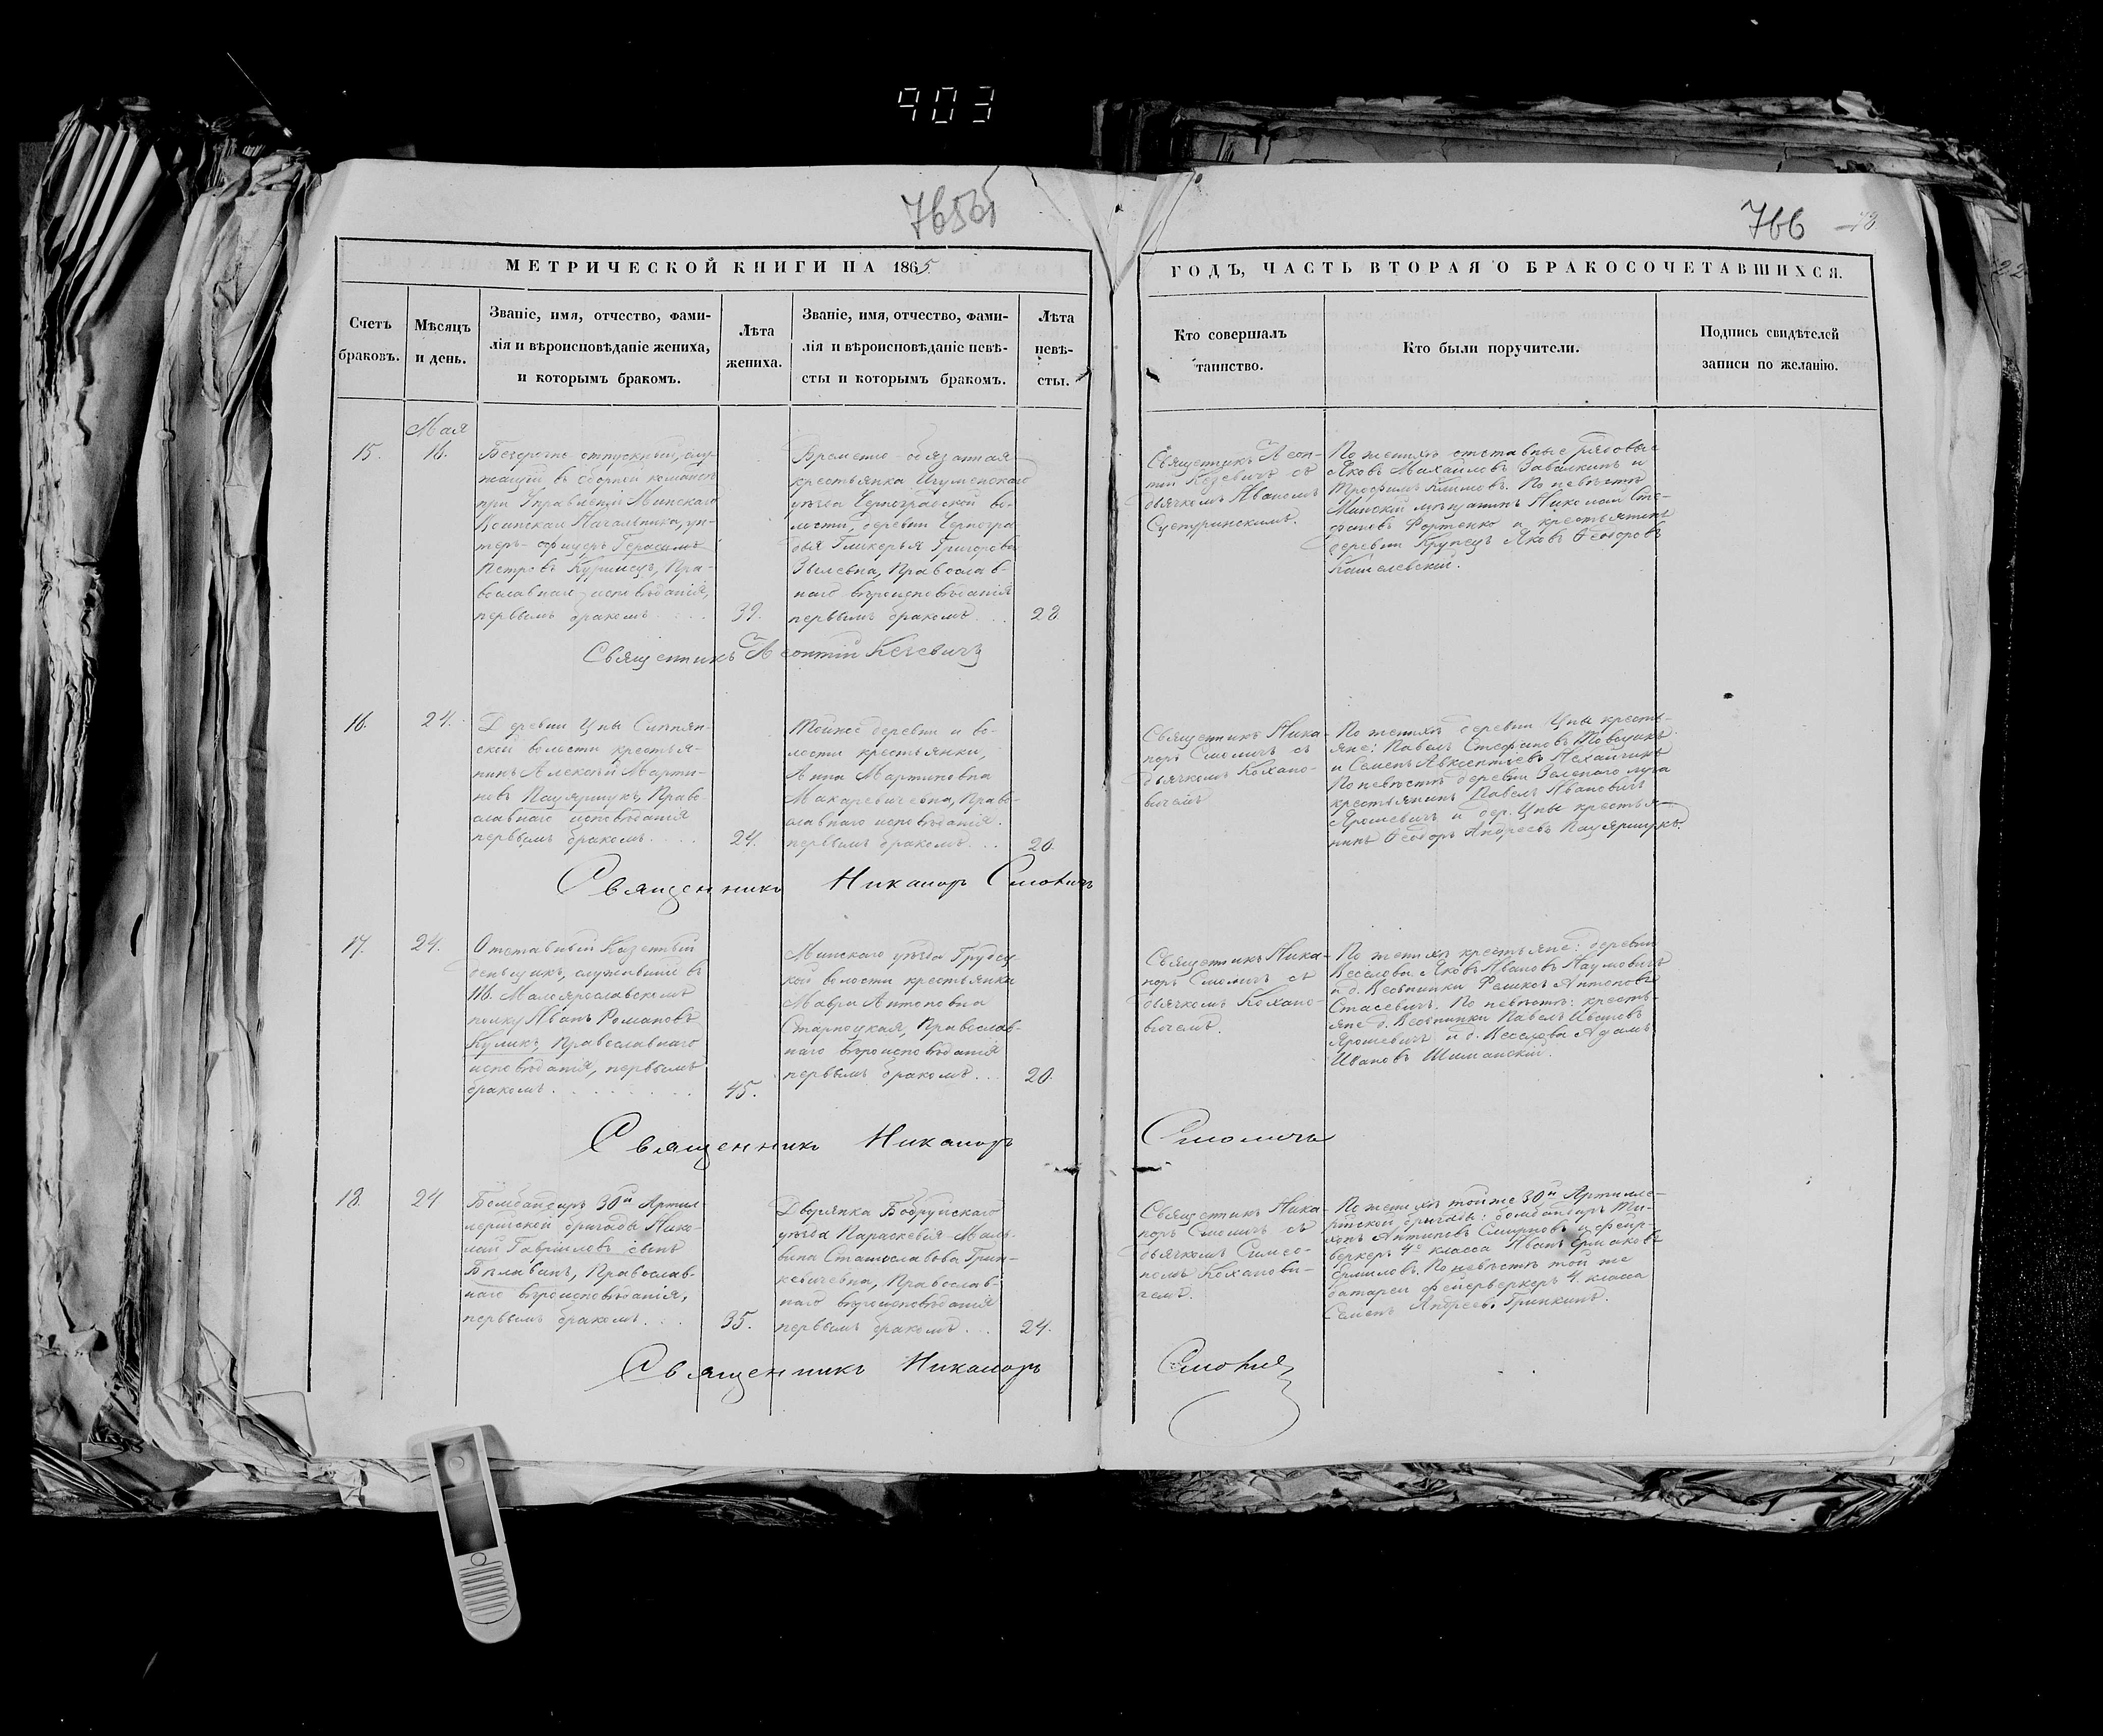 903
766
МЕТРИЧЕСКОЙ КНИГИ НА 1865
ГОДЪ, ЧАСТЬ ВТОРАЯ О БРАКОСОЧЕТАВШИХСЯ.
Счетъ
браковъ.
Мѣсяцъ
и день.
Званіе, имя, отчество, фами-
лія и вѣроисповѣданіе жениха,
и которымъ бракомъ.
Лѣта
жениха.
Званіе, имя, отчество, фами-
лія и вѣроисповѣданіе невѣ-
сты и которымъ бракомъ.
Лѣта
невѣ-
сты.
Кто совершалъ
таинство.
Кто были поручители.
Подпись свидѣтелей
записи по желанію.
Мая
15.
16.
Безсрочно отпускный, слу-
жащій въ сборной командѣ
при Управленіи Минскаго
Воинскаго Начальника, ун-
теръ-офицеръ Герасимъ
Петровъ Пра-
вославнаго исповѣданія,
первымъ бракомъ
39.
Временно-обязанная
крестьянка Игуменскаго
уѣзда во-
лости, деревни
Гликерья Григорова
Православ-
наго вѣроисповѣданія
первымъ бракомъ
28
Священникъ Леон-
тій съ
дьячкомъ Иваномъ
По женихѣ отставные рядовые
Яковъ Михайловъ Завалкинъ и
Трофимъ Климовъ. По невѣстѣ
Минскій мѣщанинъ Николай Сте-
фановъ и крестьянинъ
деревни Крупецъ Яковъ Ѳеодоровъ
Священникъ Леонтій
16.
24.
Деревни Цны
ской волости крестья-
нинъ Алексѣй Марти-
новъ Право-
славнаго исповѣданія
первымъ бракомъ
24.
Тойже деревни и во-
лости крестьянка,
Анна Мартиновна
Макаревичевна, Право-
славнаго исповѣданія.
первымъ бракомъ
20.
Священникъ Ника-
норъ Смоличъ съ
дьячкомъ Кохано-
вичемъ
По женихѣ деревни Цны кресть-
яне: Павелъ Стефановъ
и Семенъ Авксентіевъ
По невѣстѣ деревни Зеленаго луга
крестьянинъ Павелъ Ивановичъ
Ярошевичъ и дер. Цны крестья-
нинъ Ѳеодоръ Андреевъ
Священникъ Никаноръ Смоличъ
17.
24.
Отставный Казенный
деньщикъ, служившій въ
116. Малоярославскомъ
полку Иванъ Романовъ
Куликъ, Православнаго
исповѣданія, первымъ
бракомъ.
45.
Минскаго уѣзда
кой волости крестьянка
Мавра Антоновна
Православ-
наго вѣроисповѣданія
первымъ бракомъ
20.
Священникъ Ника-
норъ Смоличъ съ
дьячкомъ Кохано-
вичемъ.
По женихѣ крестьяне: деревни
Веселова Яковъ Ивановъ Наумовичъ
и д. Веснинки Феликсъ Антоновъ
Стасевичъ. По невѣстѣ: кресть-
яне д. Веснинки Павелъ Ивановъ
Ярошевичъ и д. Веселова Адамъ
Ивановъ Шиманскій.
Священникъ Никаноръ Смоличъ
18.
24
Бомбандиръ 30й Артил-
лерійской бригады Нико-
лай Гавріиловъ сынъ
Православ-
наго вѣроисповѣданія,
первымъ бракомъ
35.
Дворянка Бобруйскаго
уѣзда Параскевія-
вина Станиславова Грин-
кевичевна, Православ-
наго вѣроисповѣданія
первымъ бракомъ
24.
Священникъ Ника-
норъ Смоличъ съ
дьячкомъ Симео-
номъ Коханови-
чемъ.
По женихѣ той же 30й Артилле-
рійской бригады: бомбандиръ Ти-
хонъ Антиповъ Смирновъ и фейр-
веркеръ 4го класса Иванъ Ермаковъ
Ермиловъ. По невѣстѣ той же
батареи фейерверкеръ 4. класса
Семенъ Андреевъ Гринкинъ.
Священникъ Никаноръ Смоличъ